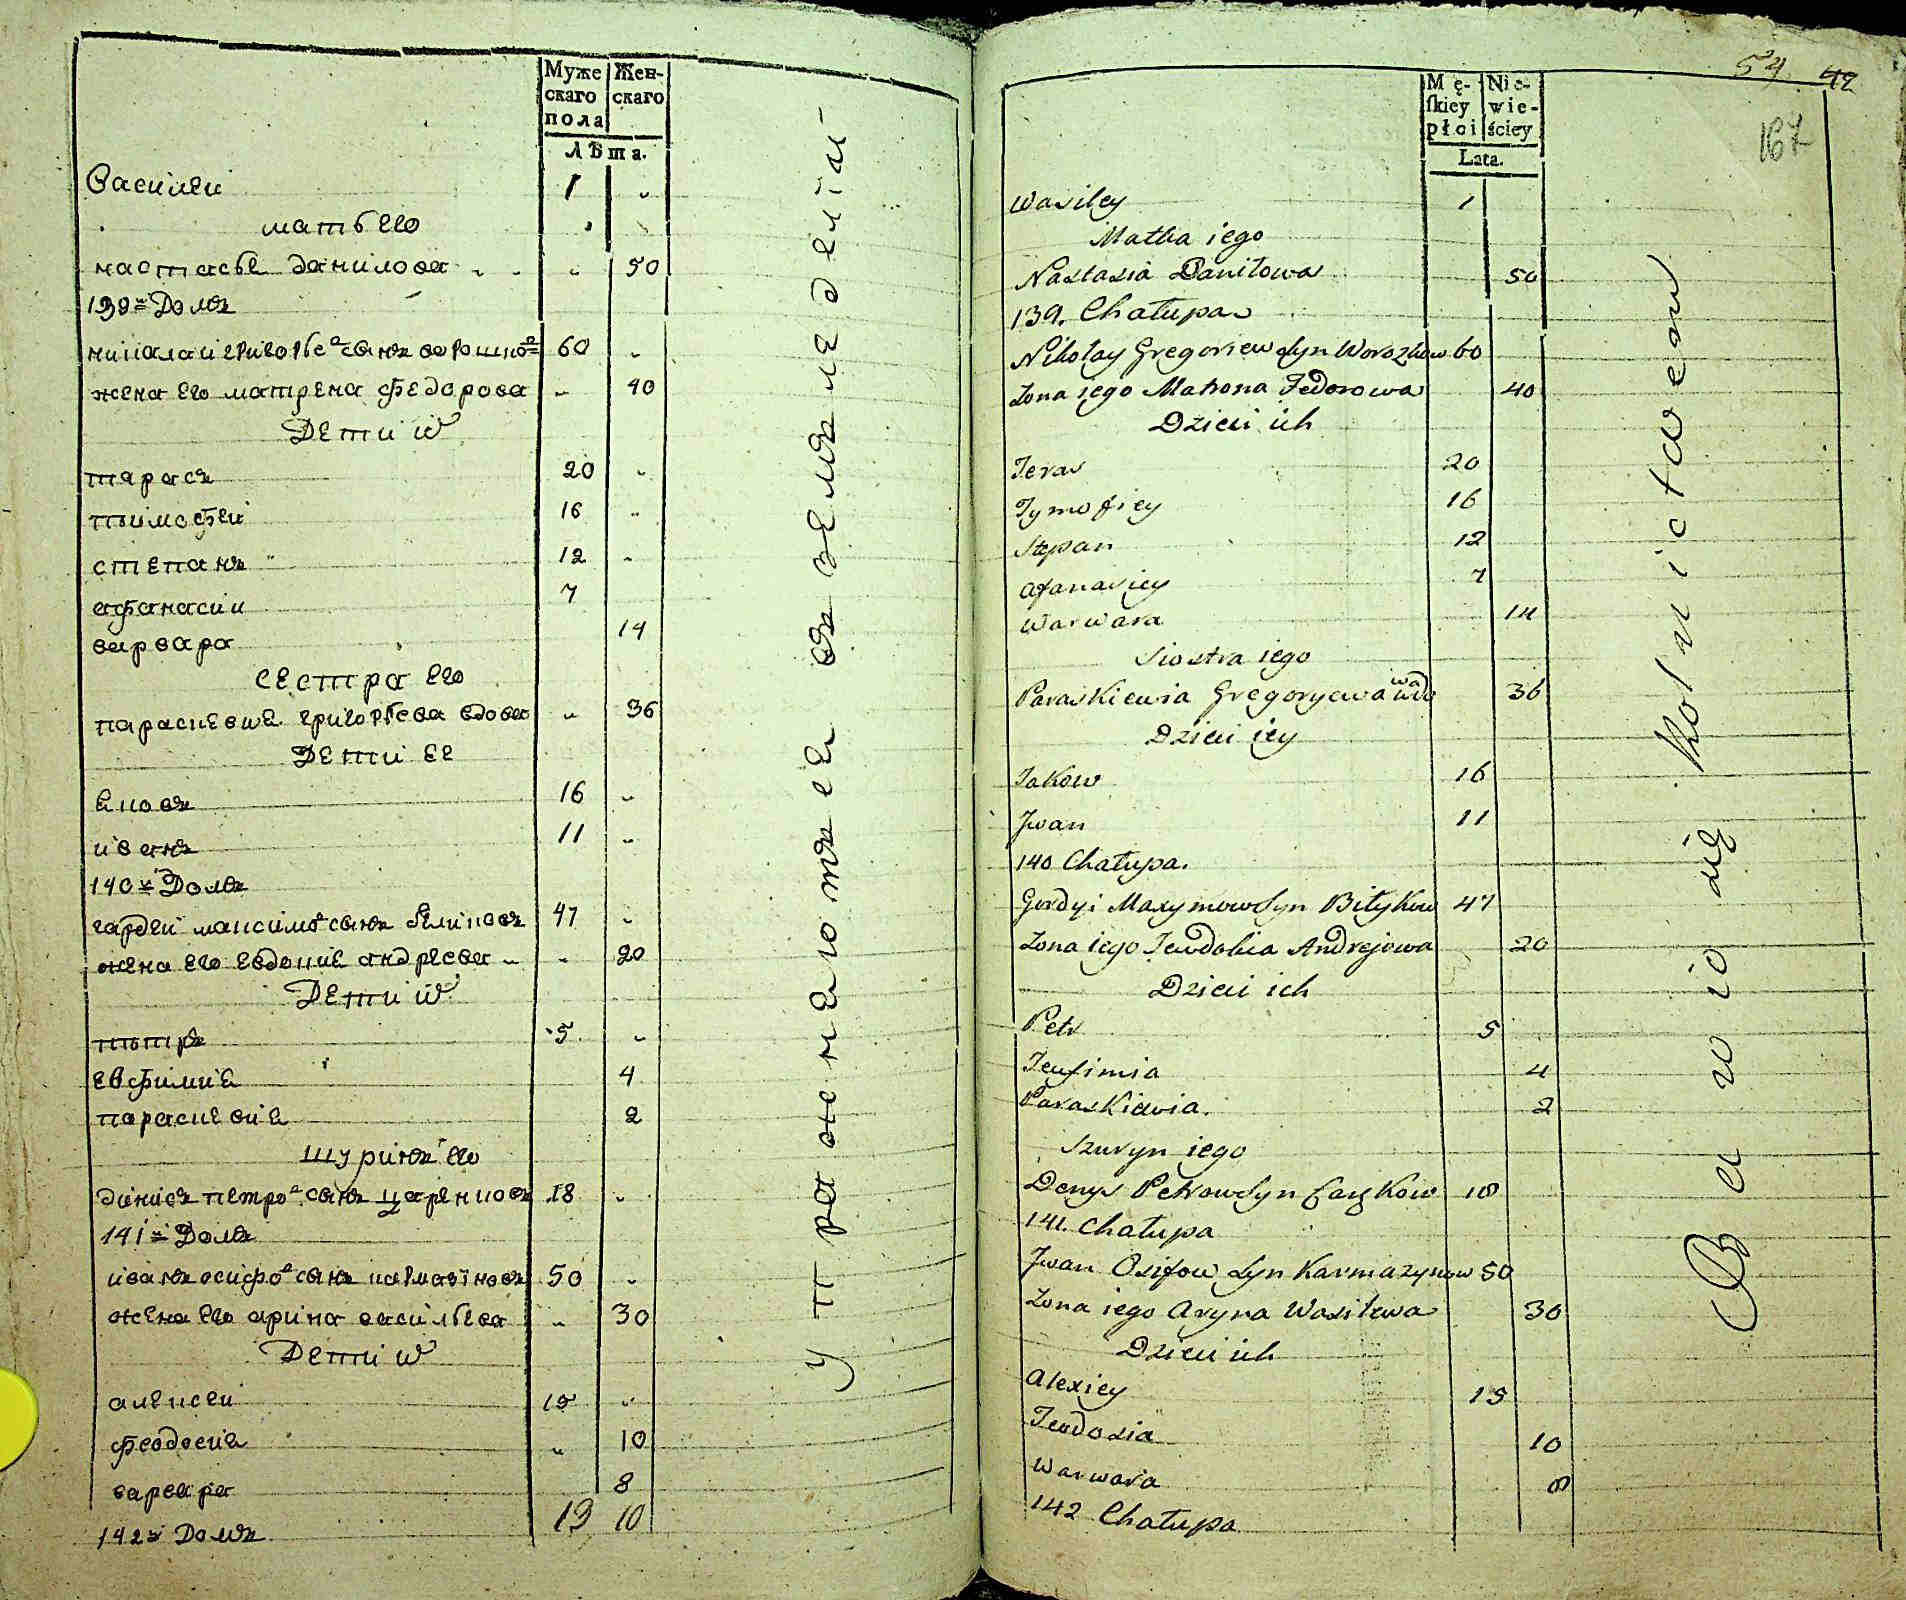 Муже Жен-
скаго скаго
пола
Лѣта.
Василеи 1 „
мать его
настасья данилова „ 50
139й Домъ
николаи григорьевъ сынъ ворошковъ 60 „
жена его матрена федорова „ 40
Дети их
тарасъ 20 „
тимофеи 16 „
степанъ 12 „
афанасии 7
варвара 14
сестра его
параскевия григорьева вдова „ 36
Дети ее
яковъ 16 „
иванъ 11 „
140й Домъ
гордеи максимовъ сынъ биликовъ 47 „
жена его евдокия андреева „ 20
Дети их
петръ 5 „
евфимия 4
параскевия 2
шуринъ его
денисъ петровъ сынъ 18 „
141й Домъ
иванъ осифовъ сынъ кармазиновъ 50 „
жена его арина васильева „ 30
Дети их
алексеи 15 „
феодосия „ 10
варвара 8
142й Домъ 13 10
упражняются въ земледелии
54 42
167
Mę- Nie-
skiey wie-
płci ściey
Lata.
Wasiley 1
Matka iego
Nastasia Daniłowa 50
139. Chałupa
Nikołay Gregoriew Syn Woroszkow 60
Zona iego Matrona Fedorowa 40
Dzieci ich
Teras 20
Tymofiey 16
Stepan 12
Afanasiey 7
Warwara 14
Siostra iego
Paraskiewia Gregoryewa wdowa 36
Dzieci iey
Jakow 16
Jwan 11
140 Chałupa.
Gordyi Maxymow Syn Biłykow 47
Zona iego Jewdokia Andrejowa 20
Dzieci ich
Petr 5
Jeufimia 4
Paraskiewia. 2
Szuryn iego
Denys Petrow Syn 18
141. Chałupa
Jwan Osifow Syn Karmazynow 50
Zona iego Aryna Wasilewa 30
Dzieci ich
Alexiey 15
Teodosia 10
Warwara 8
142 Chałupa
Bawio się Rolnictwem